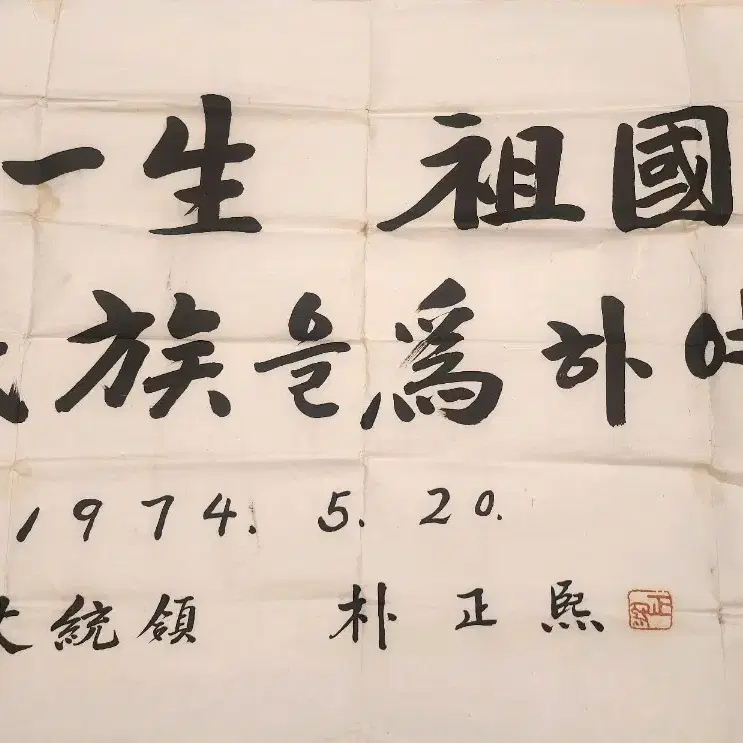 一生 祖國
族을 爲하여
1974. 5. 20.
大統領 朴正熙